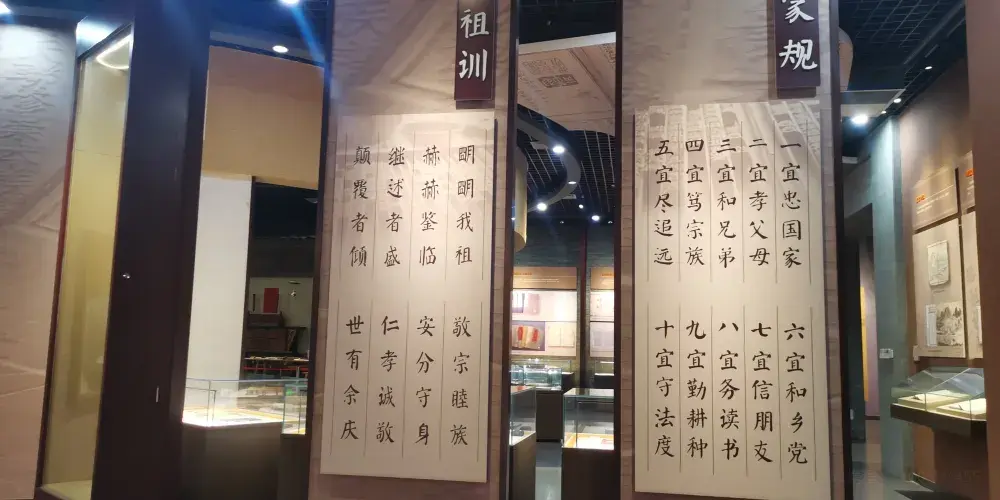 祖训
明明我祖
赫赫鉴临
继述者盛
颠覆者倾
敬宗睦族
安分守身
仁孝诚敬
世有余庆
家规
一宜忠国家
二宜孝父母
三宜和兄弟
四宜笃宗族
五宜尽追远
六宜和乡党
七宜信朋友
八宜务读书
九宜勤耕种
十宜守法度